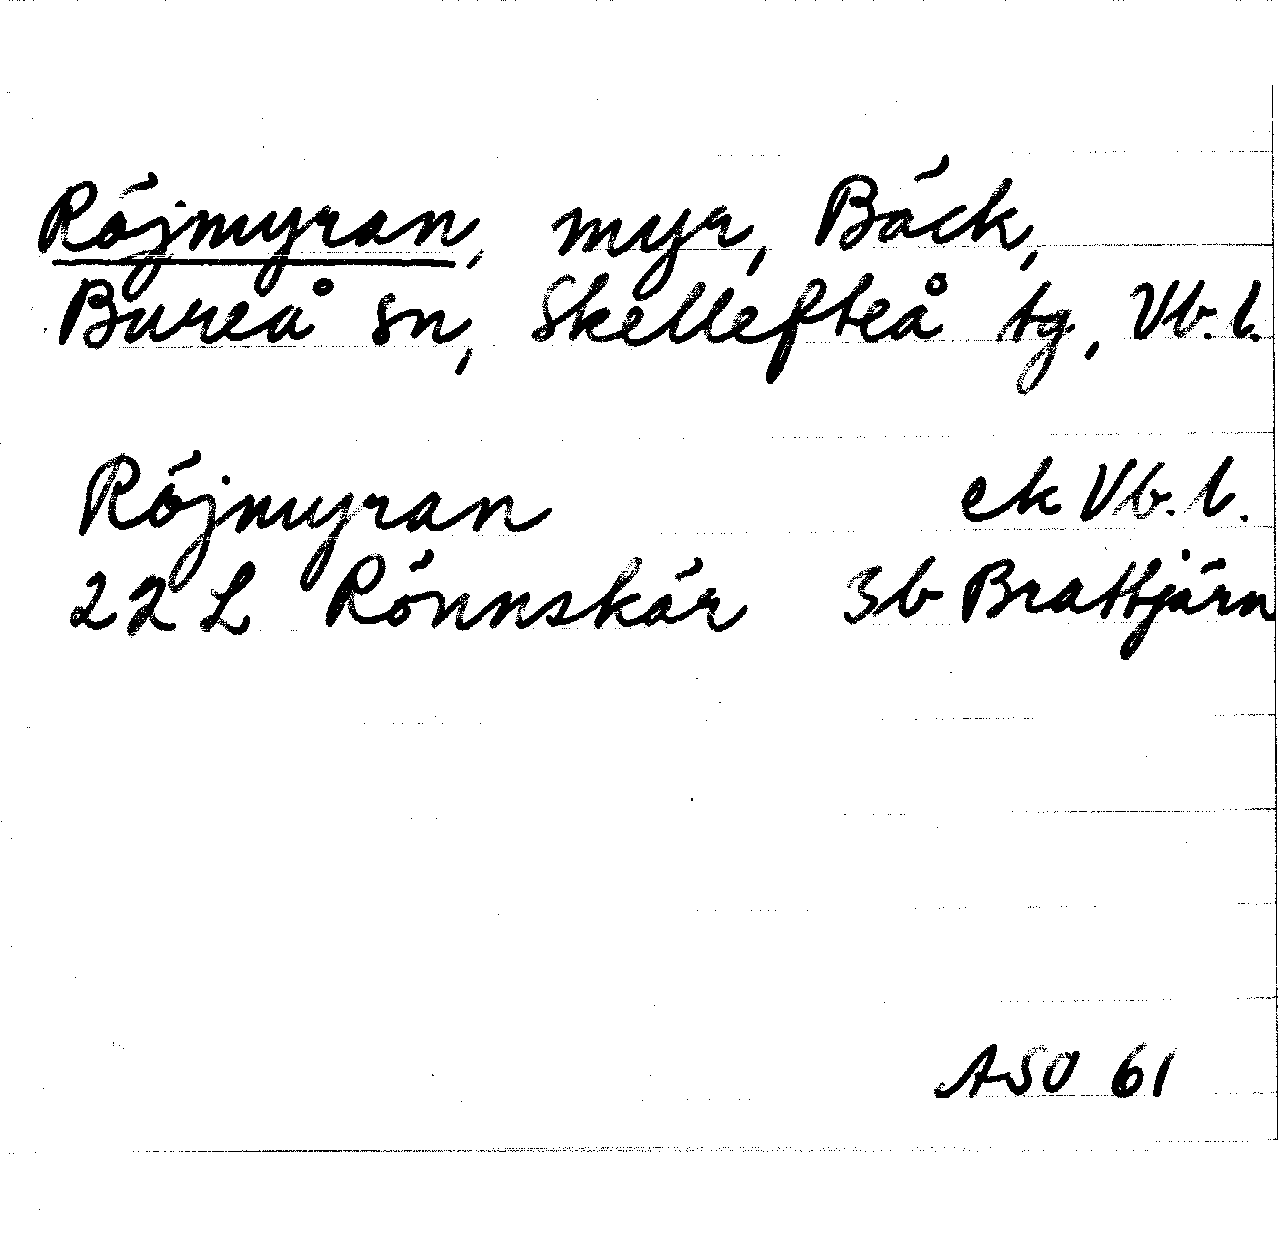 Röjmyran, myr, Bäck,
Bureå sn, Skellefteå tg, Vb. l.
Röjmyran ek Vb. l.
22 L Rönnskär 3b Brattjärn
ASO 61